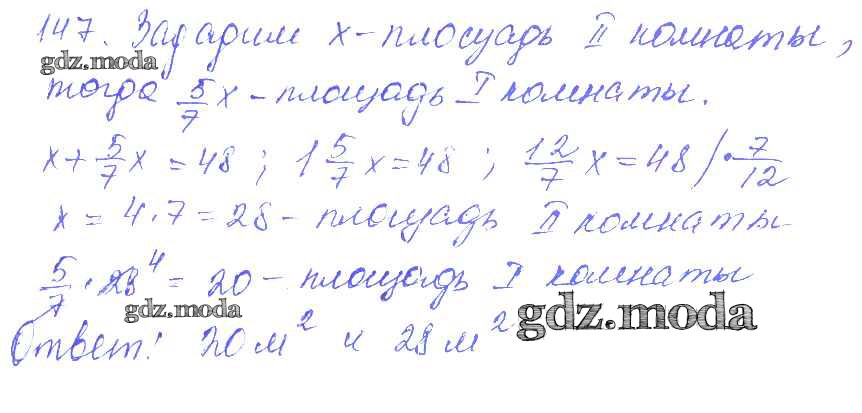 147. Зададим x - площадь II комнаты,
gdz.moda
тогда 5/7 x - площадь I комнаты.
x + 5/7 x = 48 ; 1 5/7 x = 48 ; 12/7 x = 48 / · 7/12
x = 4 · 7 = 28 - площадь II комнаты
5/7 · 28 4 = 20 - площадь I комнаты
gdz.moda
gdz.moda
Ответ: 20 м² и 28 м²